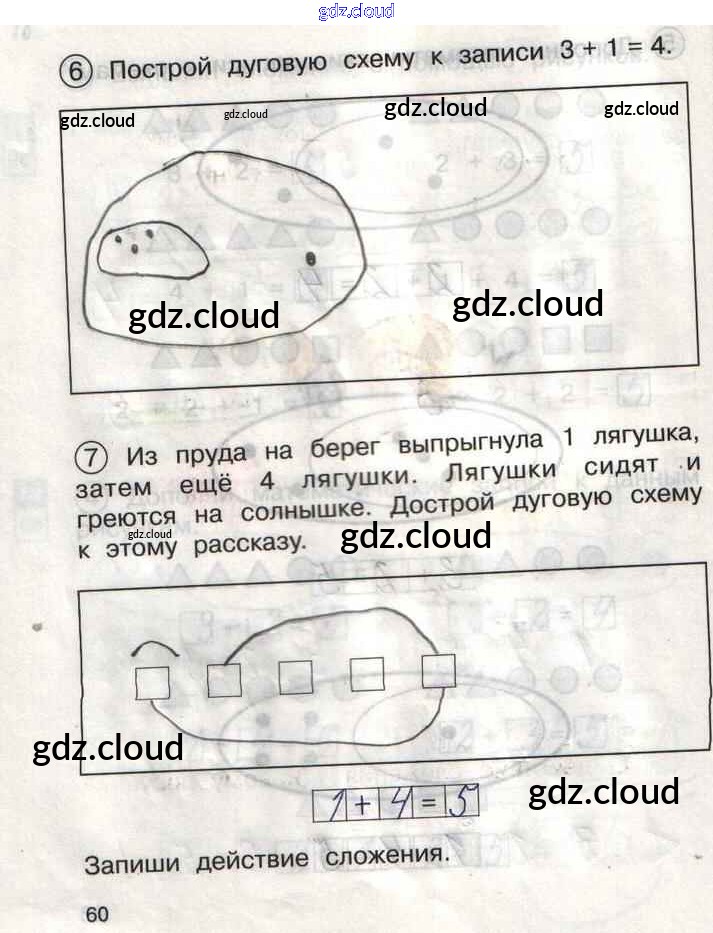 gdz.cloud
6 Построй дуговую схему к записи 3 + 1 = 4.
gdz.cloud gdz.cloud gdz.cloud gdz.cloud
gdz.cloud gdz.cloud
7 Из пруда на берег выпрыгнула 1 лягушка,
затем ещё 4 лягушки. Лягушки сидят и
греются на солнышке. Дострой дуговую схему
к этому рассказу.
gdz.cloud gdz.cloud
gdz.cloud
gdz.cloud
1 + 4 = 5
Запиши действие сложения.
60